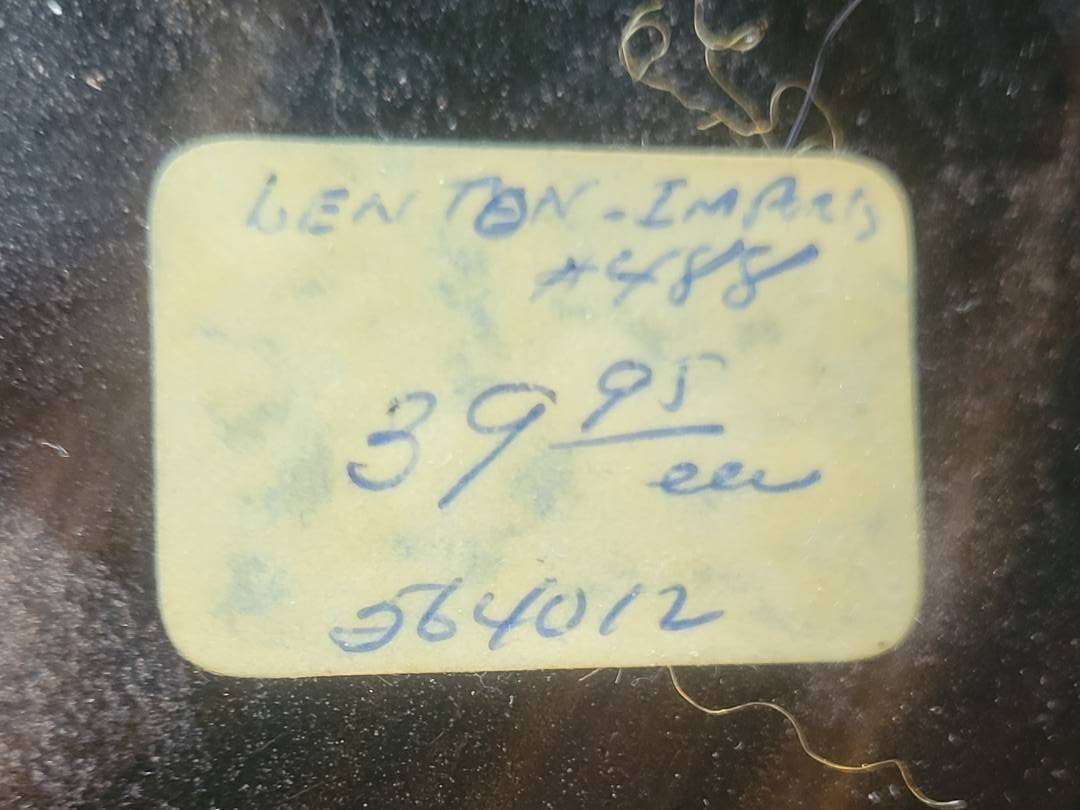 LENTON-IMPORTS
#488
39 95
ea
564012